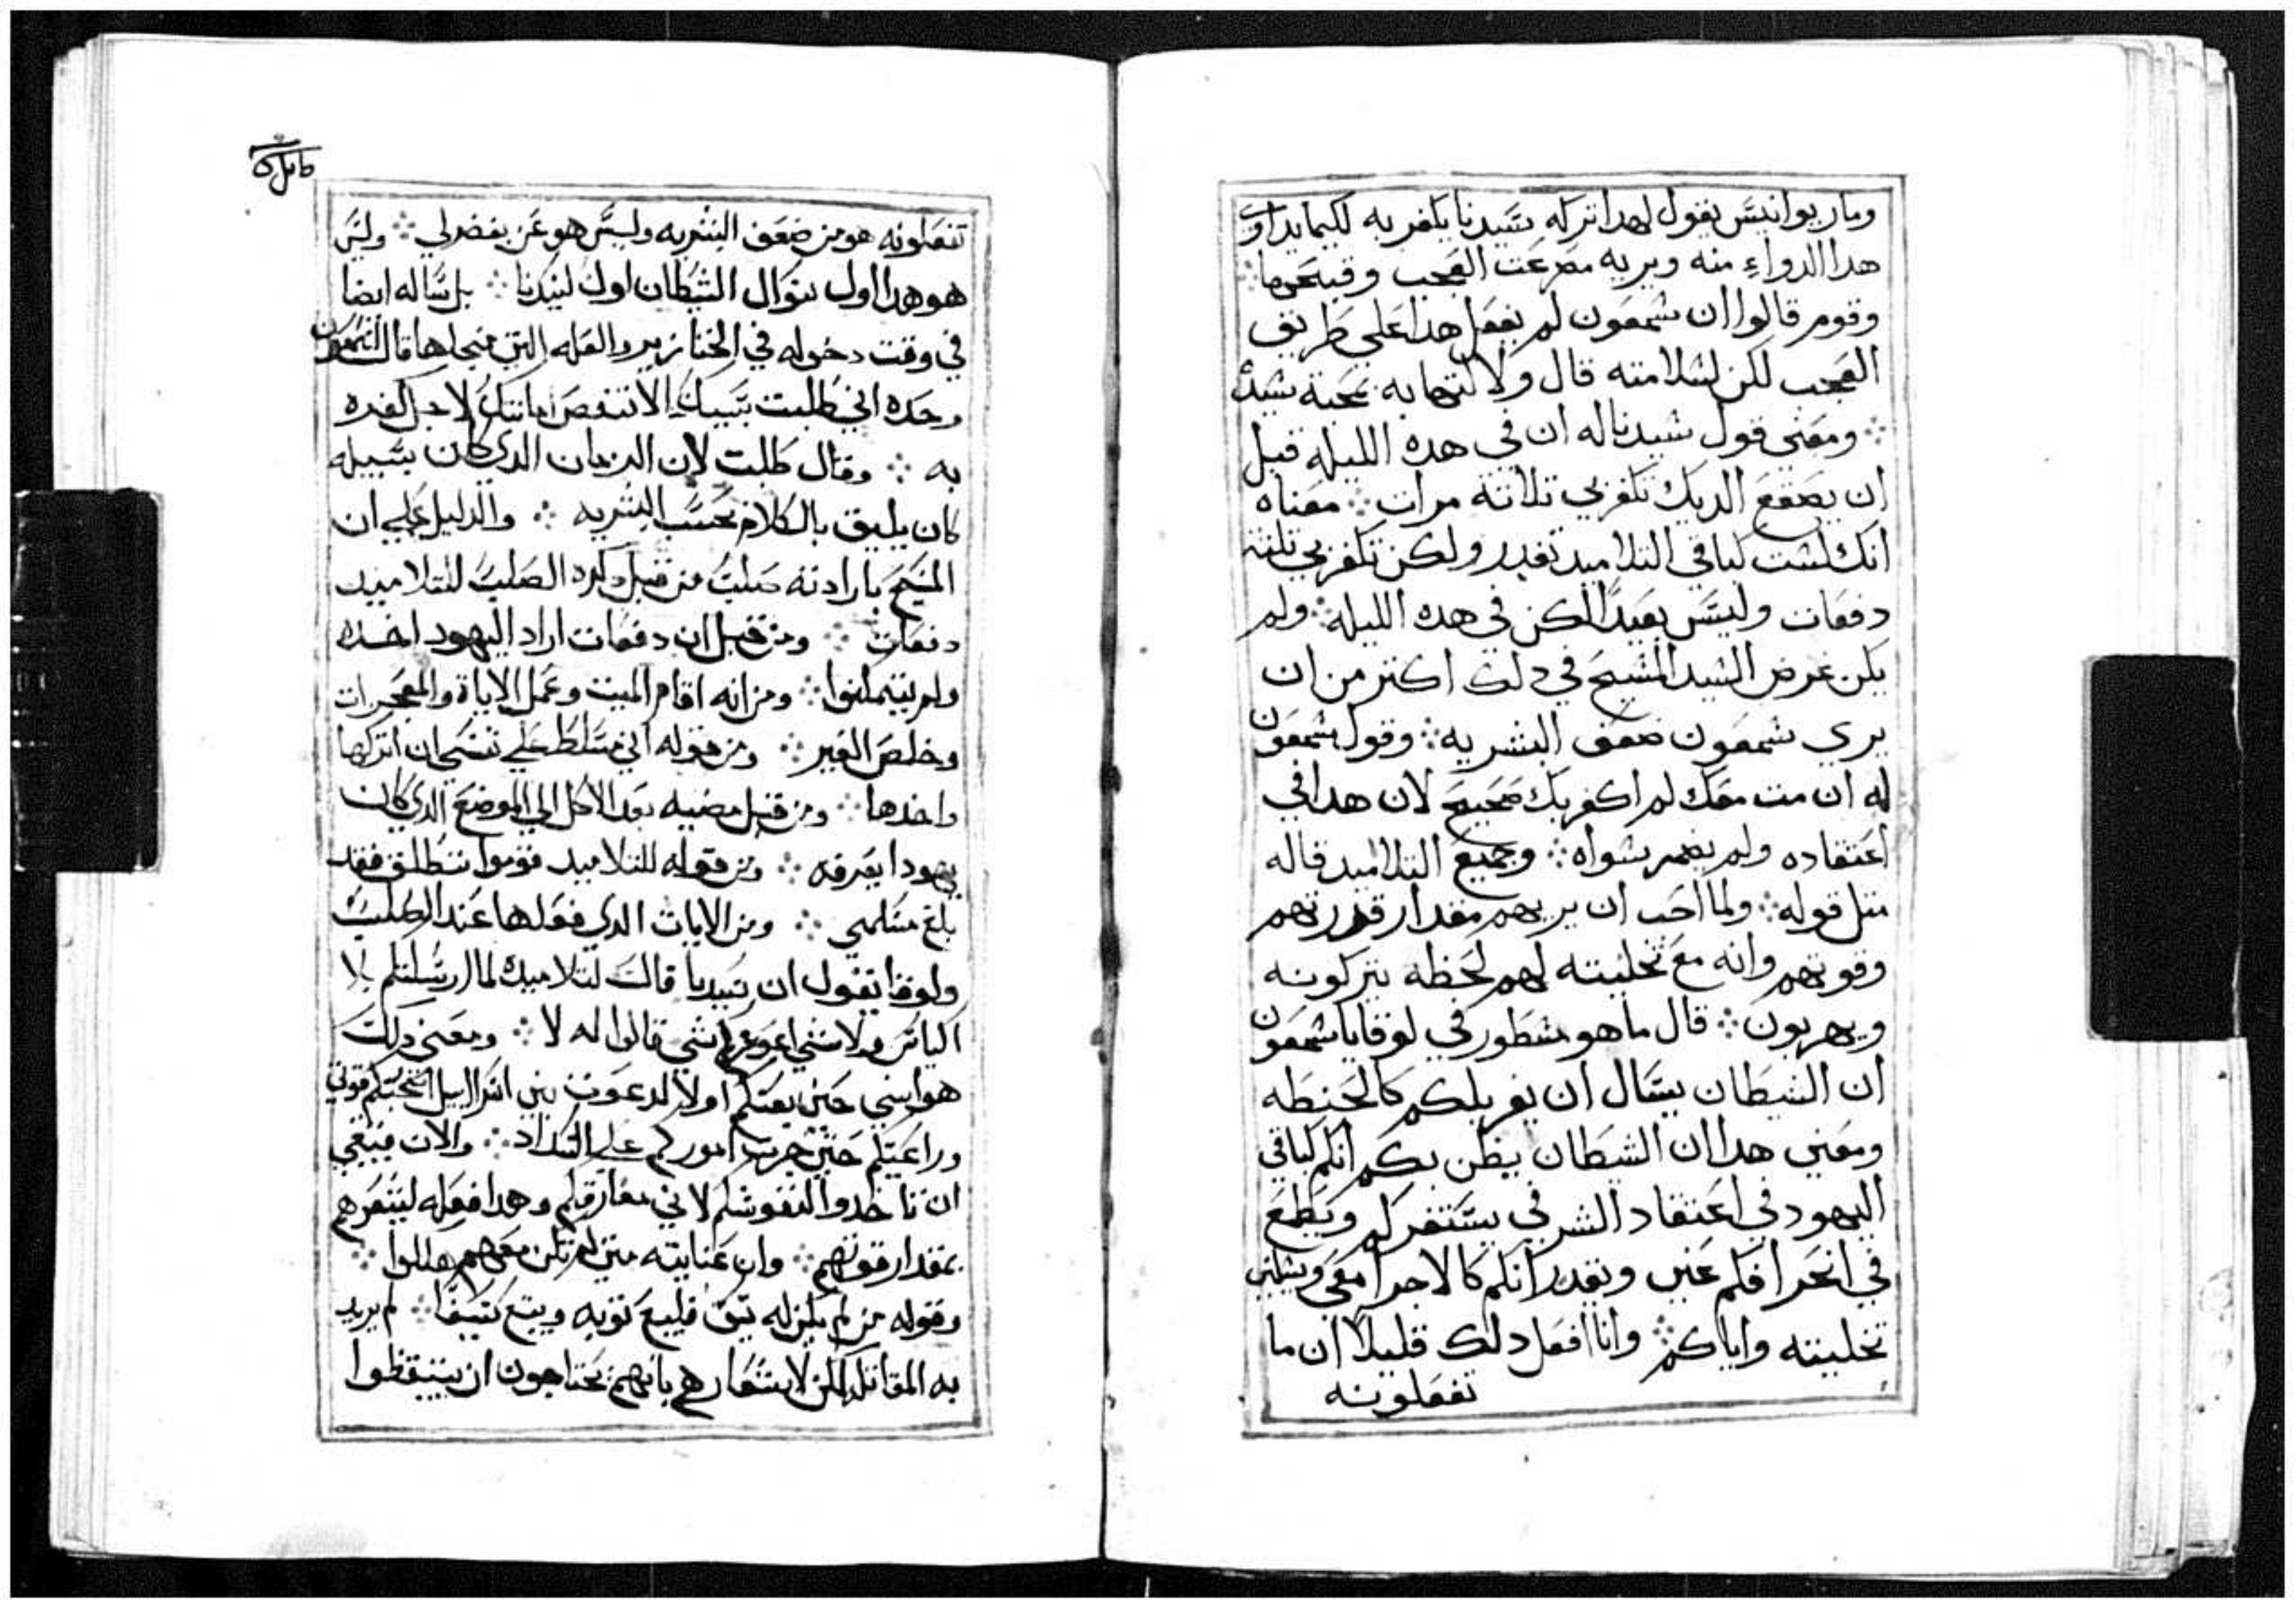 ومار يوانيس يقول لهدا تركه سيدنا يكفر به لكيما يداوي
هدا الدواء منه ويريه مصرعت العجب وقبحها
وقوم قالوا ان شمعون لم يفعل هدا علي طريق
العجب لكن لسلامته قال ولالتهابه بمحبة سيده
ومعني قول سيدنا له ان في هده الليله قبل
ان يصقع الديك تكفر بي تلاتة مرات معناه
انك لست كباقي التلاميد تغدر ولكن تكفر بي تلته
دفعات وليس بعيدا لكن في هده الليله ولم
يكن غرض السيد المسيح في دلك اكتر من ان
يري شمعون ضعف البشريه وقول شمعون
له ان مت معك لم اكفر بك صحيح لان هدا في
اعتقاده ولم يضمر سواه وجميع التلاميد قاله
متل قوله ولما احب ان يريهم مقدار قدرتهم
وقوتهم وانه مع تخليته لهم لحظه يتركونه
ويهربون قال ما هو مسطور في لوقا يا شمعون
ان الشيطان يسال ان يغربلكم كالحنطه
ومعني هدا ان الشيطان يظن بكم انكم كباقي
اليهود في اعتقاد الشر في يستنفركم ويطمع
في انحرافكم عني ويقدر انكم كالاجرا معي ويسلني
تخليته واياكم وانا افعل دلك قليلا ان ما
تفعلونه
تفعلونه هو من ضعف البشريه وليس هو عن بغض لي وليس
هو هدا اول سوال الشيطان اول لسيدنا بل ساله ايضا
في وقت دخوله في الخنازير والعله التي من اجلها قال لشمعون
وحده اني طلبت بسببك الا تنقص امانتك لاجل كفره
به وقال طلبت لان الزمان الدي كان بسبيله
كان يليق بالكلام بحسب البشريه والدليل علي ان
المسيح بارادته صلب من قبل دكره الصلب للتلاميد
دفعات ومن قبل ان دفعات اراد اليهود اخده
ولم يتمكنوا ومن انه اقام الميت وعمل الاياة والمعجزات
وخلص الغير ومن قوله اني مسلط علي نفسي ان اتركها
واخدها ومن قبل مضيه بعد الاكل الي الموضع الدي كان
يهودا يعرفه ومن قوله للتلاميد قوموا ننطلق فقد
بلغ مسلمي ومن الايات الدي فعلها عند الصلب
ولوقا يقول ان سيدنا قال لتلاميده لما ارسلتكم بلا
اكياس ولا شي اعوزكم شي قالوا له لا ومعني دلك
هو انني حين بعتكم اولا لدعوت بني اسراييل اصحبتكم قوتي
وراعيتكم حتي جرت اموركم علي السداد والان ينبغي
ان تاخدوا لنفوسكم لاني مفارقكم وهدا فعله ليشعرهم
بمقدار قوتهم وان عنايته متي لم تكن معهم هلكوا
وقوله من لم يكن له سيف فليبع توبه ويبتع سيفا لم يريد
به المقاتله لكن لاشعارهم بانهم يحتاجون ان يتيقظوا